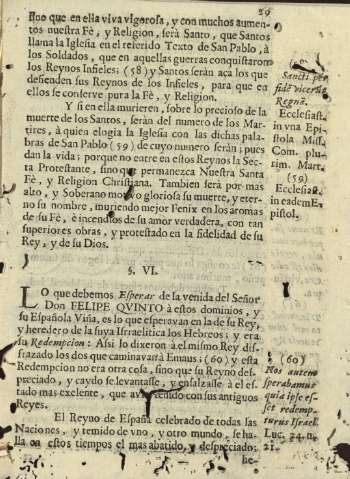 29
sino que en ella viva vigorosa, y con muchos aumen-
tos nuestra Fè, y Religion, serà Santo, que Santos
llama la Iglesia en el referido Texto de San Pablo, à
los Soldados, que en aquellas guerras conquistaron
los Reynos Infieles; (58) y Santos seràn aca los que
defienden sus Reynos de los Infieles, para que en
ellos se conserve pura la Fè, y Religion.
Y si en ella murieren, sobre lo precioso de la
muerte de los Santos, seràn del numero de los Mar-
tires, à quien elogia la Iglesia con las dichas pala-
bras de San Pablo (59) de cuyo numero seràn; pues
dan la vida; porque no entre en estos Reynos la Sec-
ta Protestante, sino que permanezca Nuestra Santa
Fè, y Religion Christiana. Tambien serà por mas
alto, y Soberano motivo gloriosa su muerte, y eter-
no su nombre, muriendo mejor Fenix en los aromas
de su Fè, è incendios de su amor verdadera, con tan
superiores obras, y protestado en la fidelidad de su
Rey, y de su Dios.
§. VI.
LO que debemos Esperar de la venida del Señor
Don FELIPE QUINTO à estos dominios, y
su Española Viña, es lo que esperavan en la de su Rey,
y heredero de la suya Israelitica los Hebreos; y era
su Redempcion: Assi lo dixeron à el mismo Rey dis-
frazado los dos que caminavan à Emaus; (60) y esta
Redempcion no era otra cosa, sino que su Reyno des-
preciado, y caydo se levantasse, y ensalzasse à el es-
tado mas exelente, que avia tenido con sus antiguos
Reyes.
El Reyno de España celebrado de todas las
Naciones, y temido de vno, y otro mundo, se ha-
lla en estos tiempos el mas abatido, y despreciado;
he-
Sancti per
fidè vicerut
Regna.
Ecclesiast.
in vna Epi-
stola Miss.
Com. plu-
tim. Mart.
(59)
Ecclesiæ
in eadem E-
pistol.
(60)
Nos autem
sperabamus
quia ipse es-
set redemp-
turus Israel.
Luc. 24. n.
21.